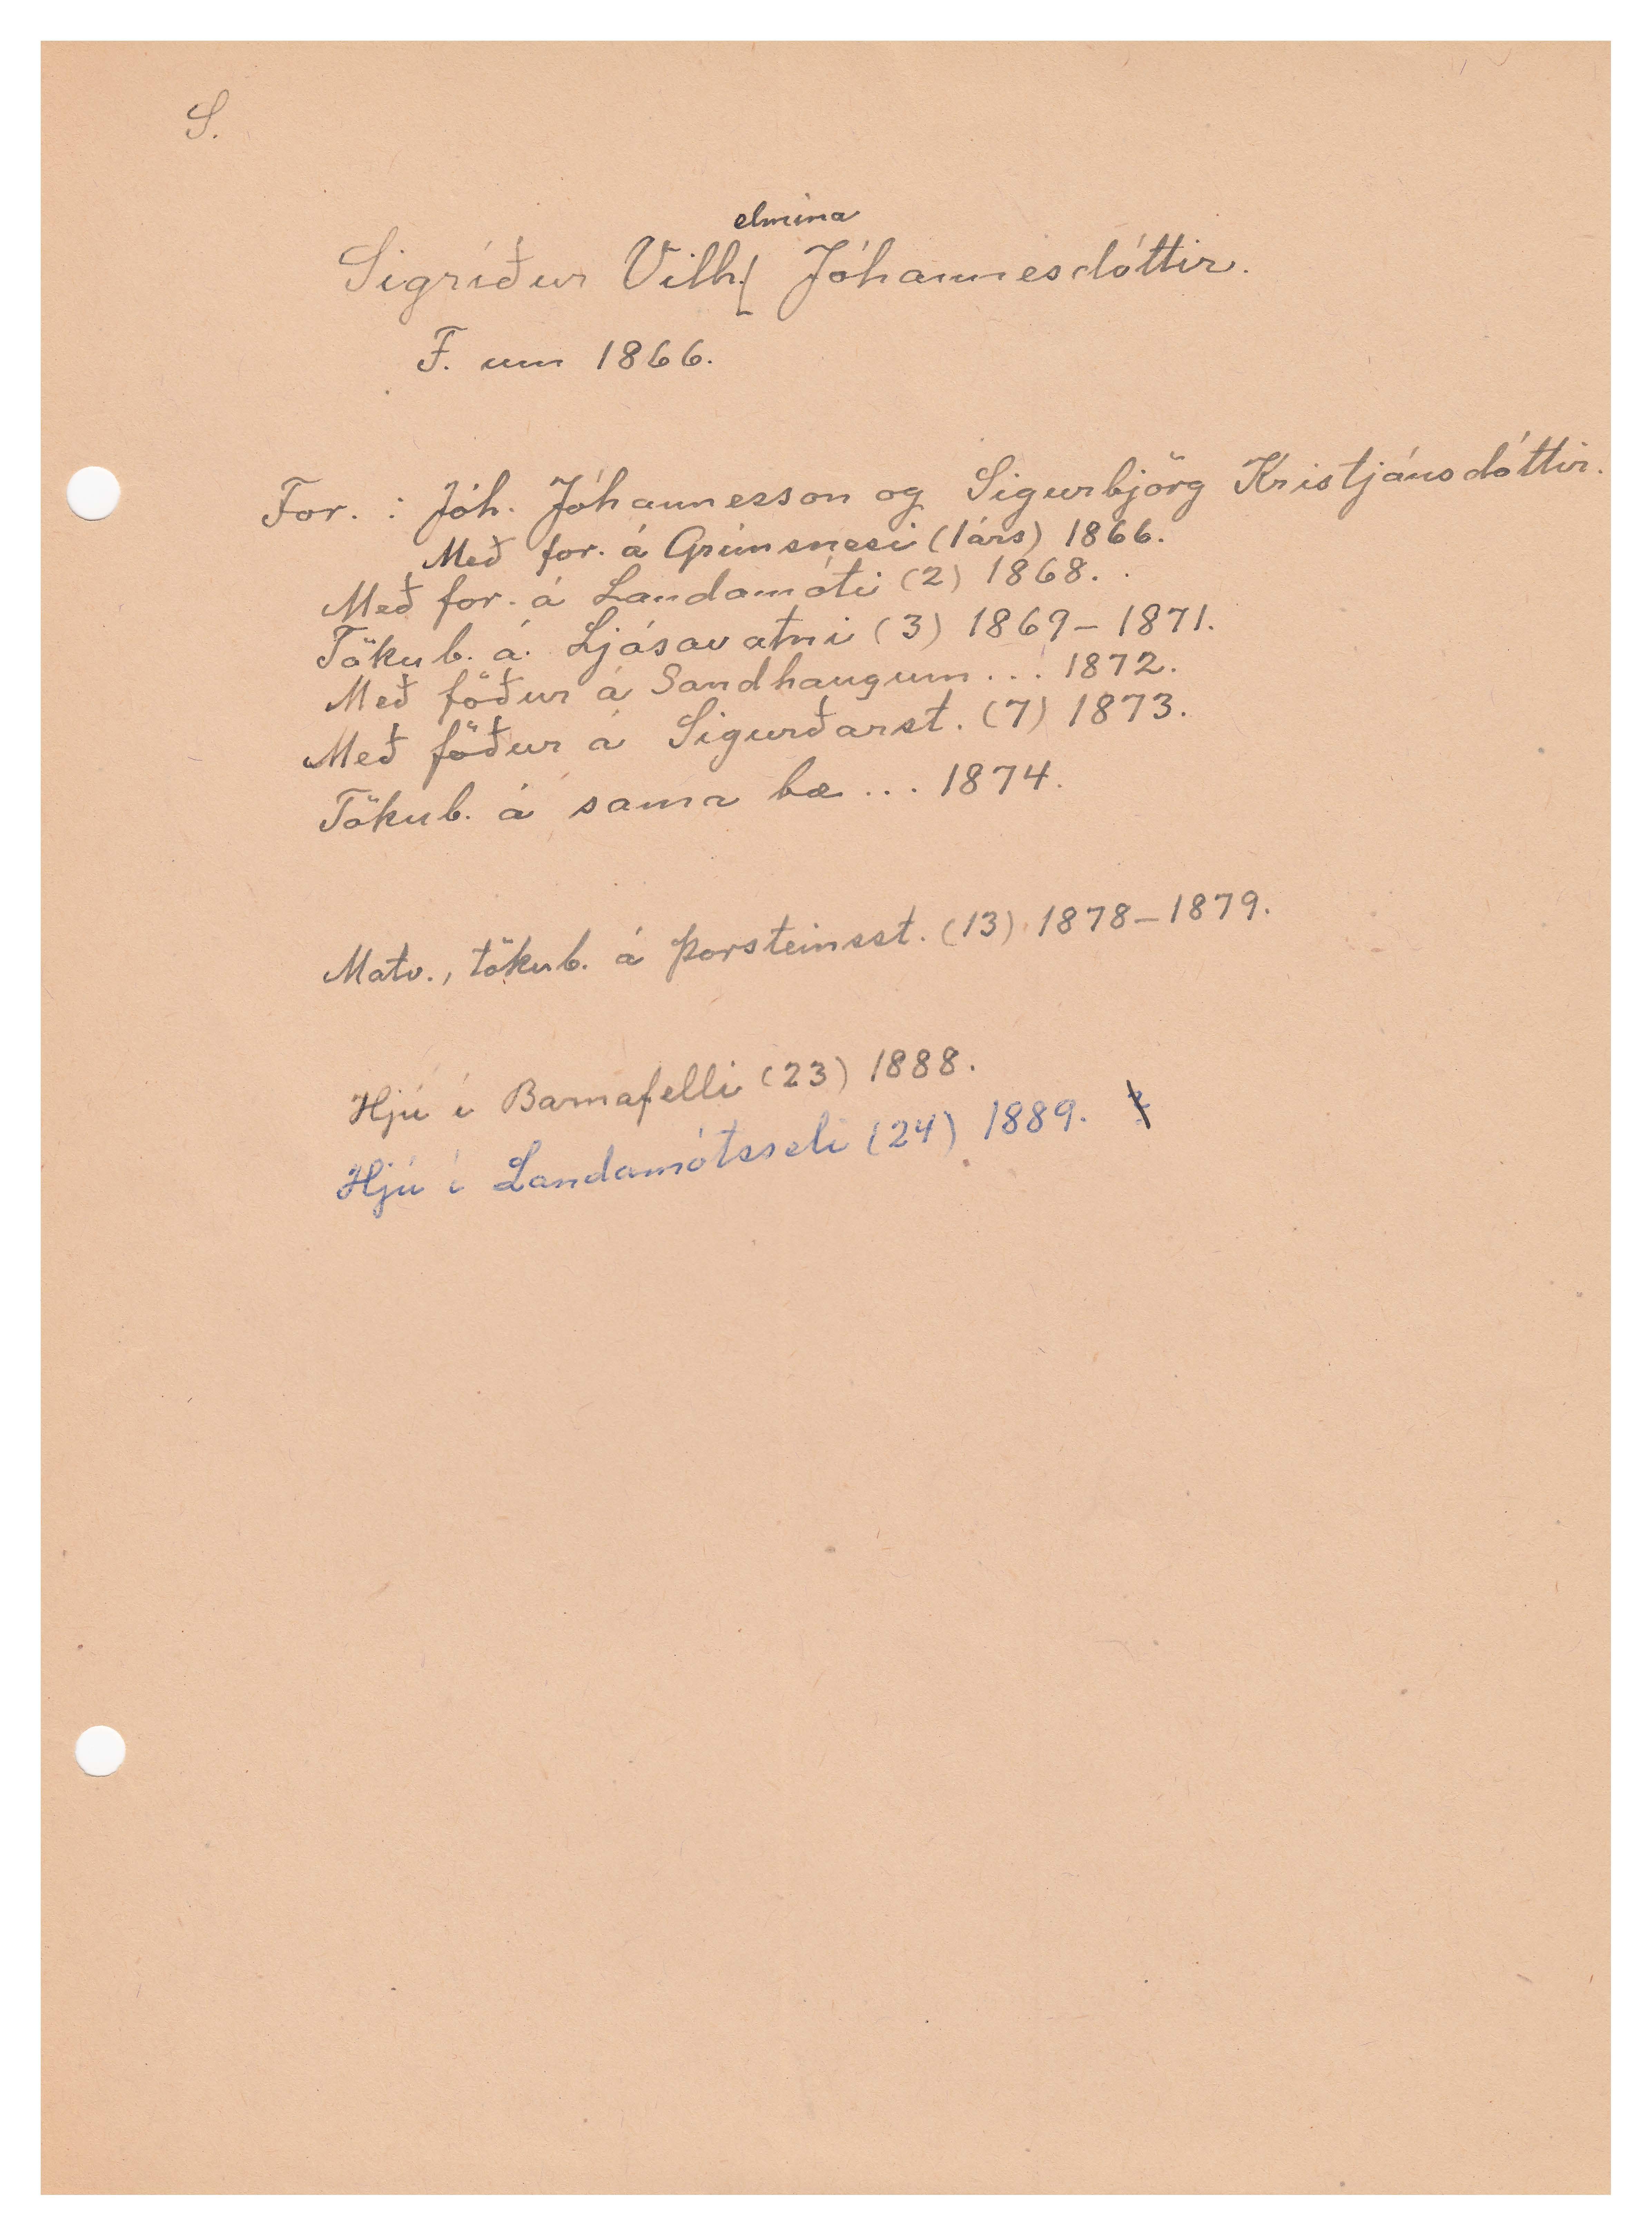 S.
elmina
Sigríður Vilh. Jóhannesdóttir.
F. um 1866.
For. : Jóh. Jóhannesson og Sigurbjörg Kristjánsdóttir.
Með for. á Grímsnesi (1árs) 1866.
Með for. á Landamóti (2) 1868.
Tökub. á Ljósavatni (3) 1869-1871.
Með föður á Sandhaugum... 1872.
Með föður á Sigurðarst. (7) 1873.
Tökub. á sama bæ... 1874.
Matv., tökub. á Þorsteinsst. (13) 1878-1879.
Hjú í Barnafelli (23) 1888.
Hjú í Landamótsseli (24) 1889.